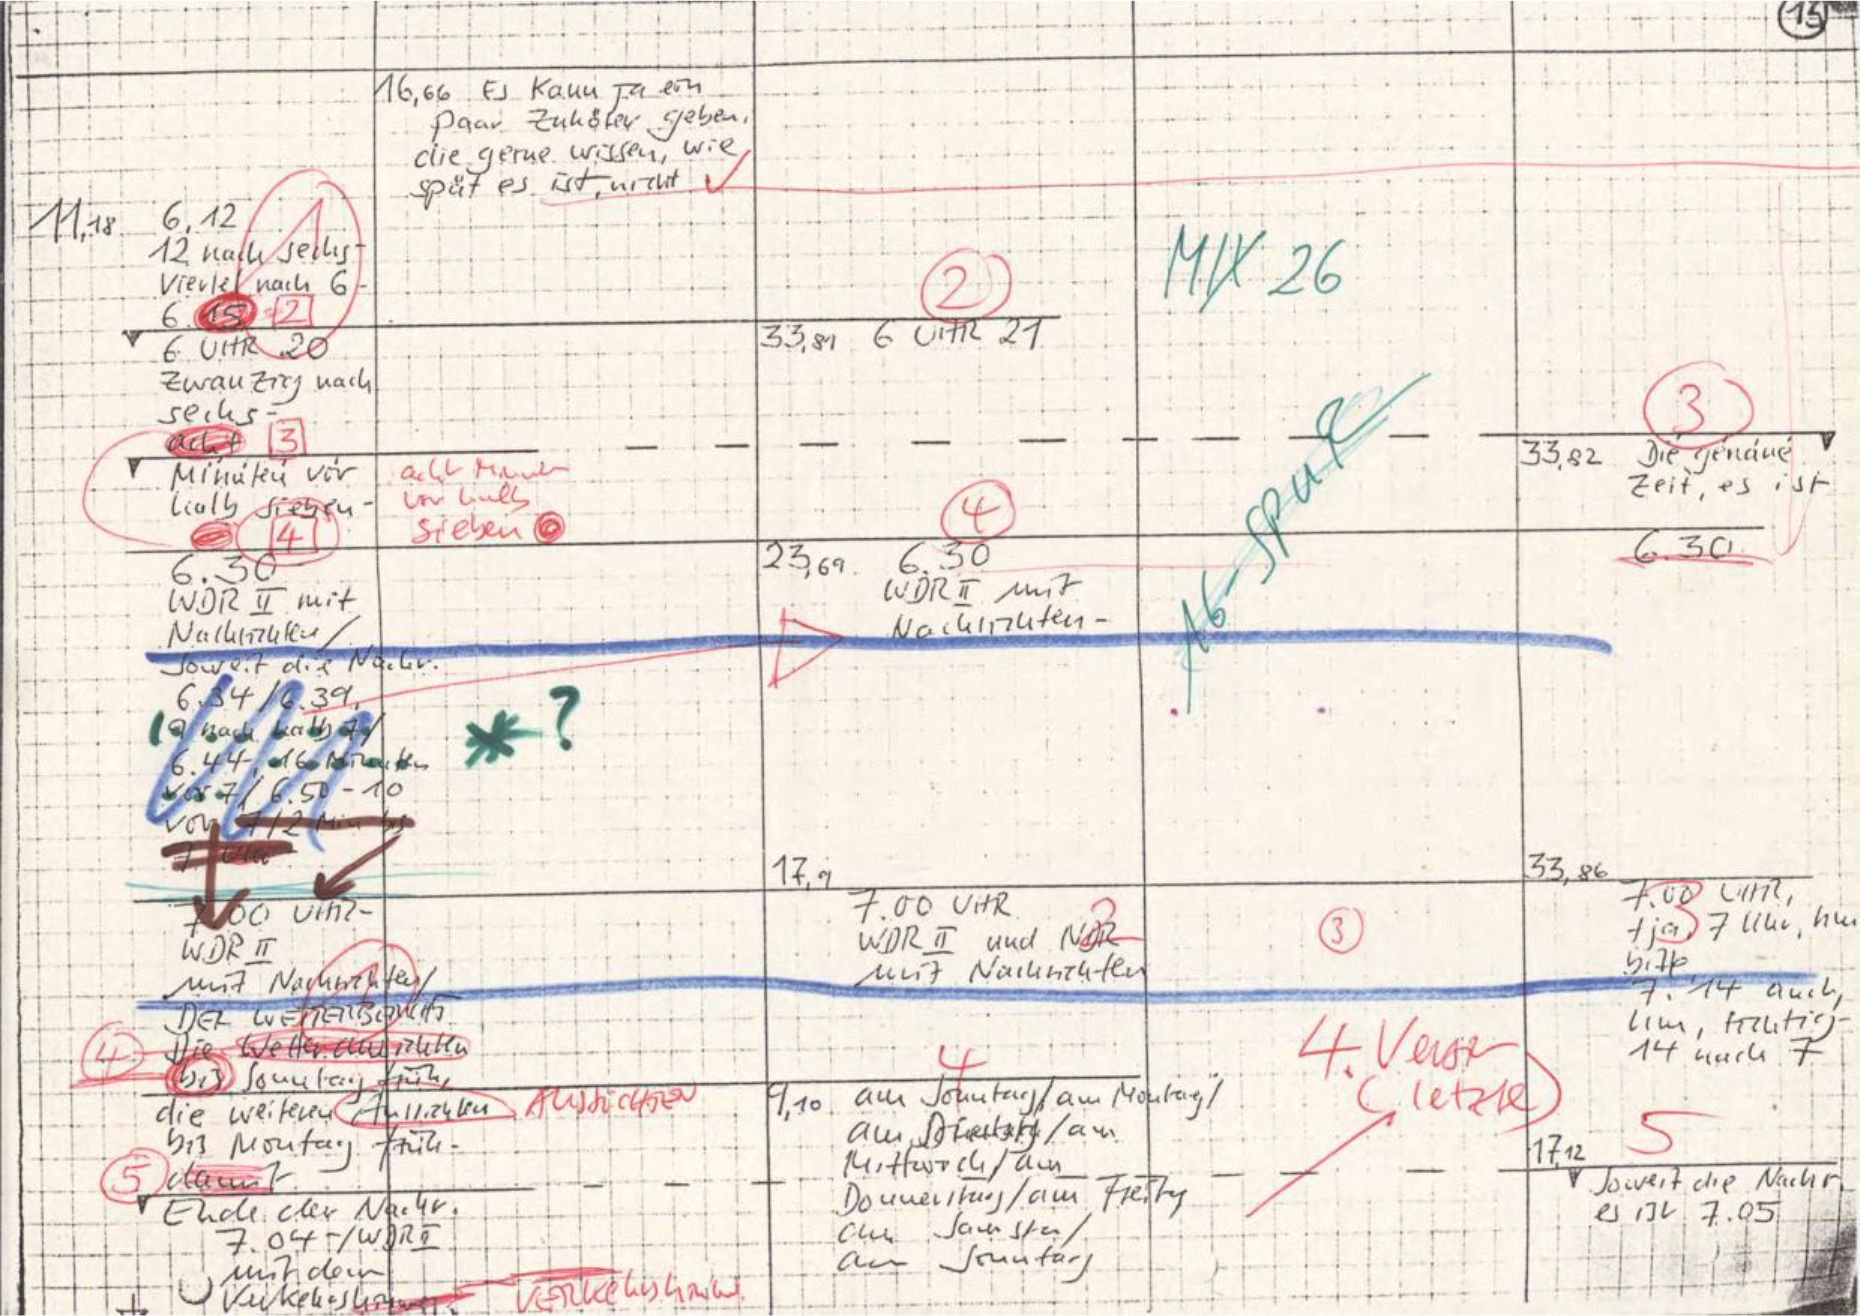 15
16,66 Es kann ja ein
paar Zuhörer geben,
die gerne wissen, wie
spät es ist, nicht
11,18
6,12
12 nach sechs-
viertel nach 6-
6.15 2
1
6 UHR 20
zwanzig nach
sechs-
acht 3
Minuten vor
halb sieben-
4
acht Minuten
vor halb
sieben
2
33,81 6 UHR 21
MIX 26
16-SPUR
3
33,82 Die genaue
Zeit, es ist
6.30
4
23,69 6.30
WDR II mit
Nachrichten-
6.30
WDR II mit
Nachrichten/
Soweit die Nachr.
6.34/6.39,
9 nach halb 7/
6.44, 16 Minuten
vor 7/6.50-10
vor 7/2 Min bis
7 Uhr
* ?
7.00 UHR-
WDR II
mit Nachrichten/
DER WETTERBERICHT
4 Die Wetteraussichten
bis Sonntag früh,
die weiteren Aussichten AUSSICHTEN
bis Montag früh-
5 damit
Ende der Nachr.
7.04-/WDR II
mit dem
Verkehrshinweis. VERKEHRSHINW.
17,9
7.00 UHR
WDR II und NDR
mit Nachrichten
2
3
33,86
7.00 UHR,
tja, 7 Uhr, hm
bitte
7.14 auch,
hm, richtig-
14 nach 7
3
4
9,10 am Sonntag/am Montag/
am Dienstag/am
Mittwoch/am
Donnerstag/am Freitag
am Samstag/
am Sonntag
4. Vers
(letzte)
5
17,12
Soweit die Nachr.
es ist 7.05